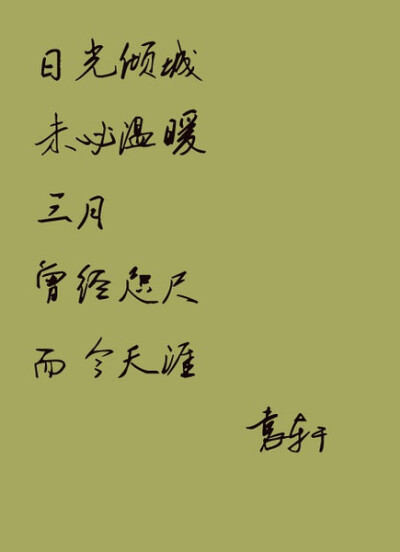 日光倾城
未必温暖
三月
曾经咫尺
而今天涯
袁轩